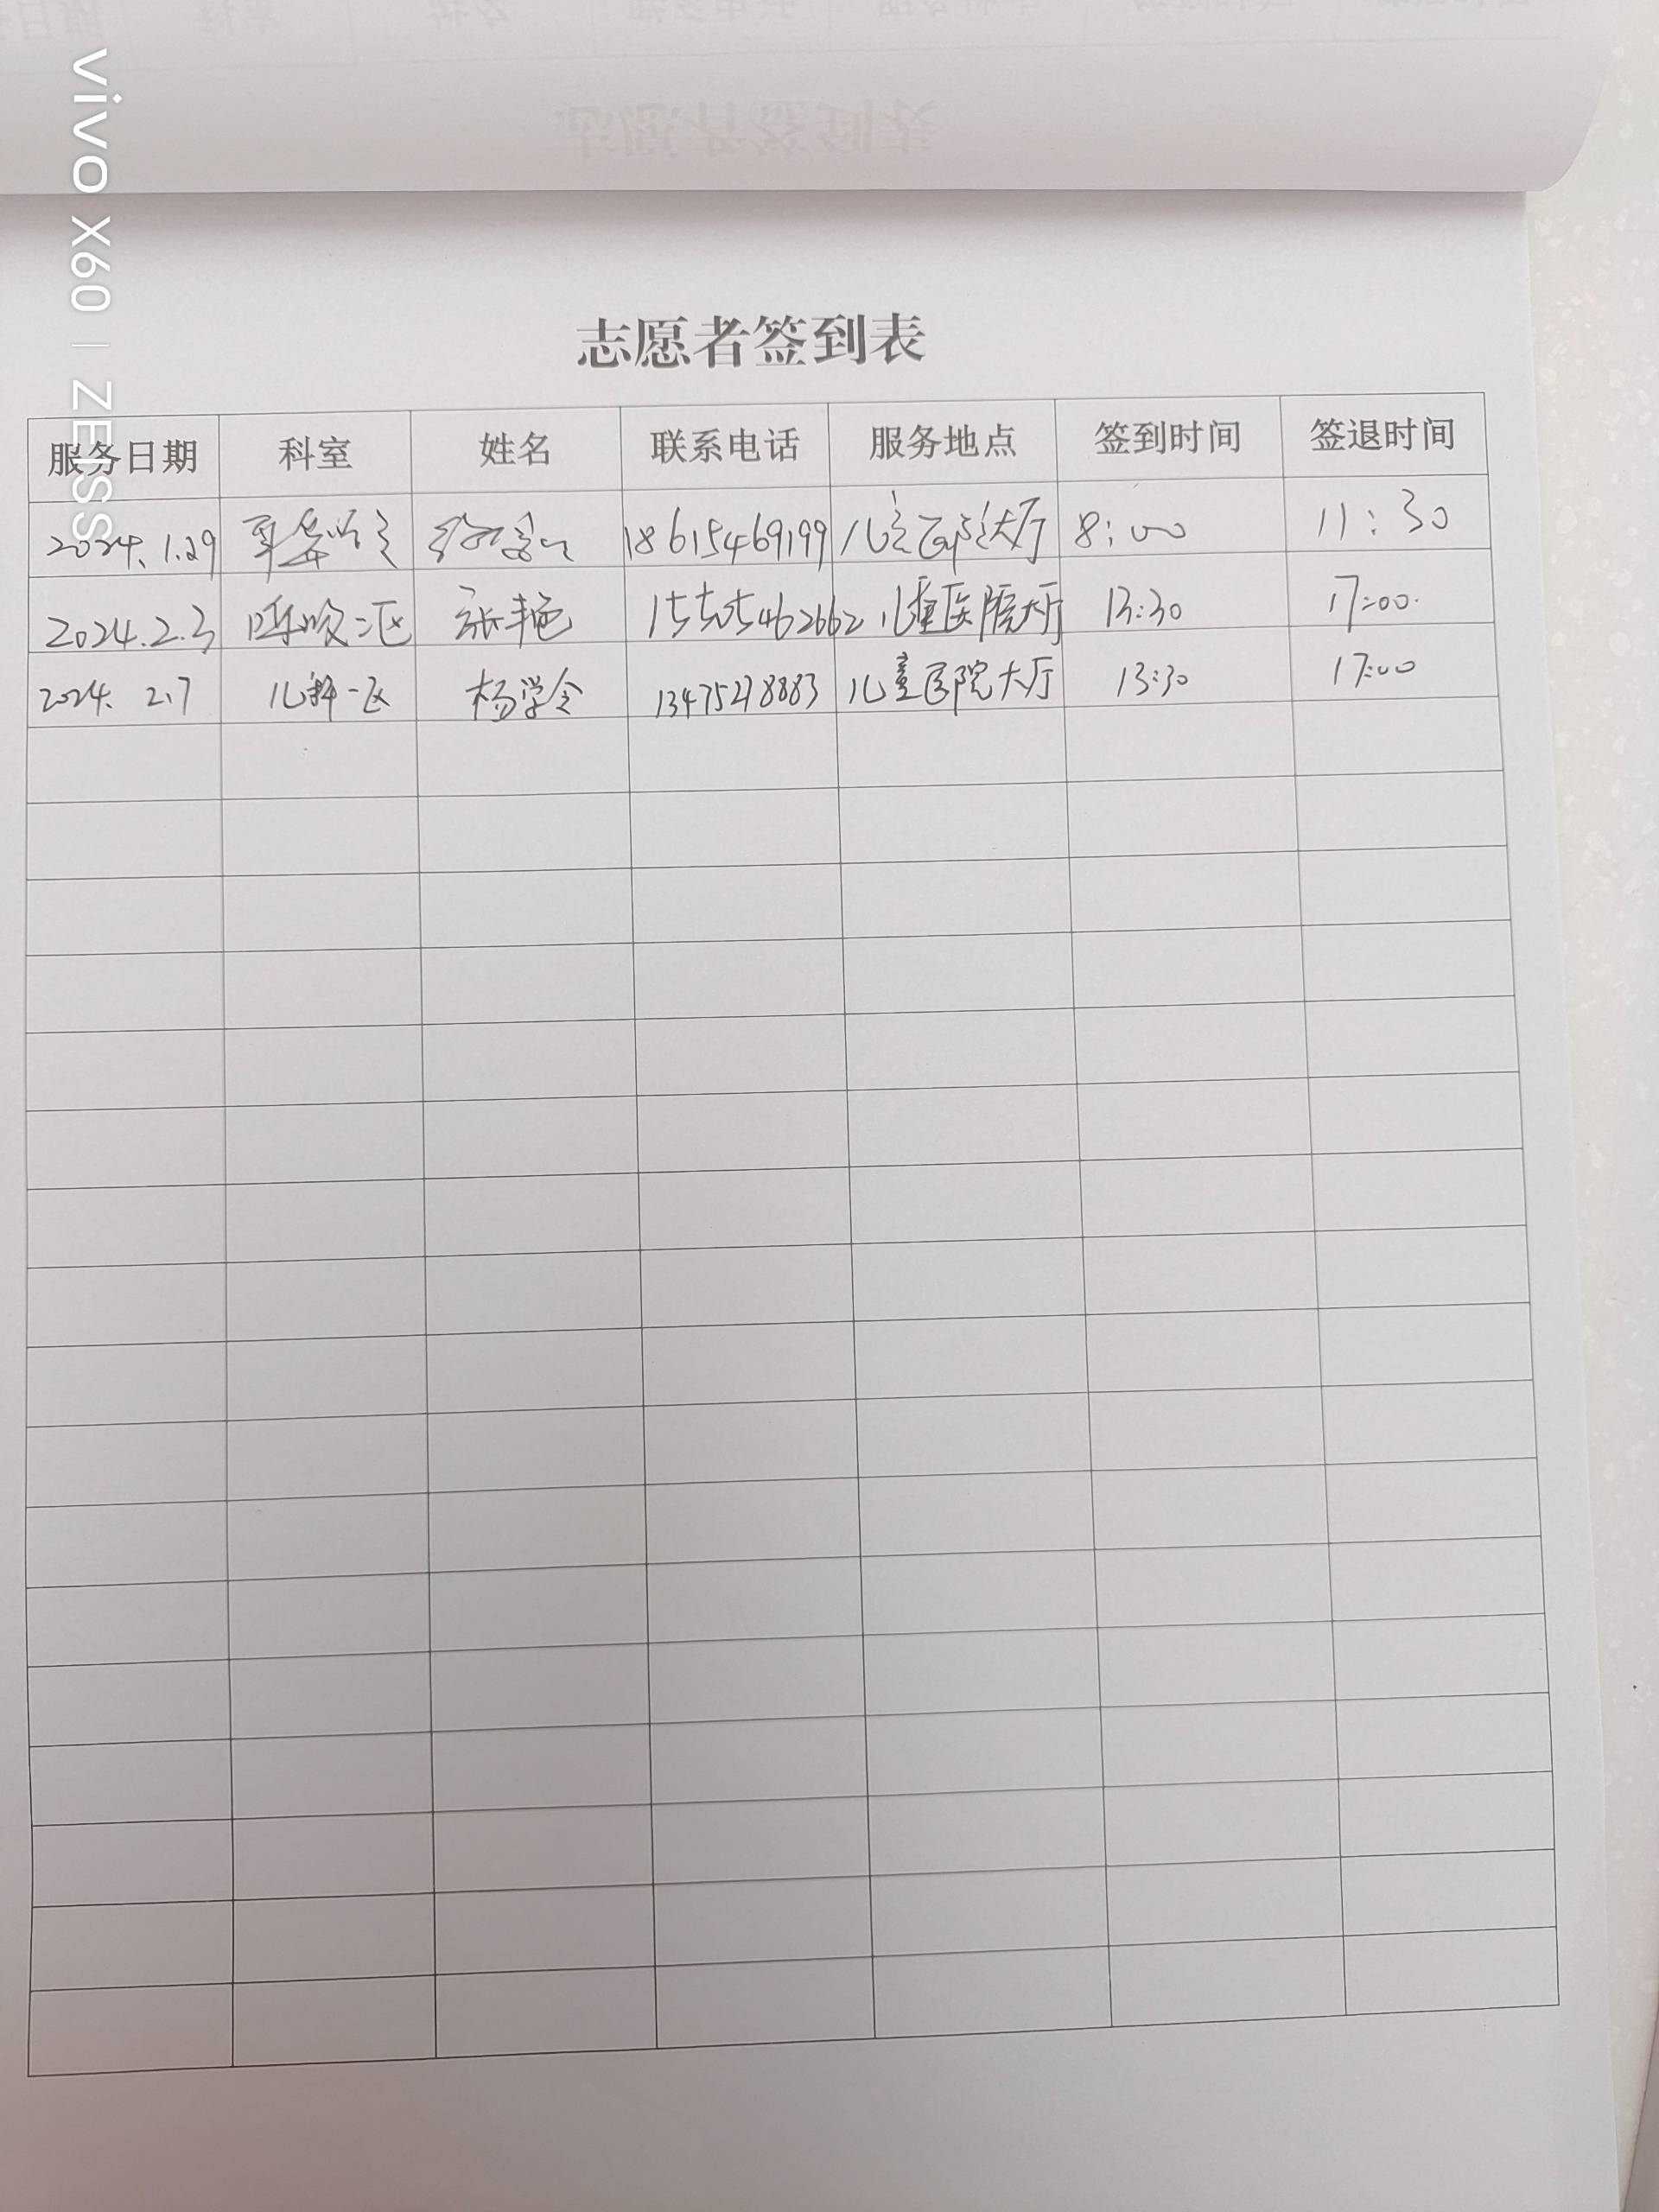 vivo X60 | ZEISS
志愿者签到表
服务日期 科室 姓名 联系电话 服务地点 签到时间 签退时间
2024.1.29 耳鼻喉 18615469199 大厅 8:00 11:30
2024.2.3 呼吸二区 张艳 15505462662 儿童医院大厅 13:30 17:00
2024.2.7 儿科一区 杨学令 13475278883 儿童医院大厅 13:30 17:00